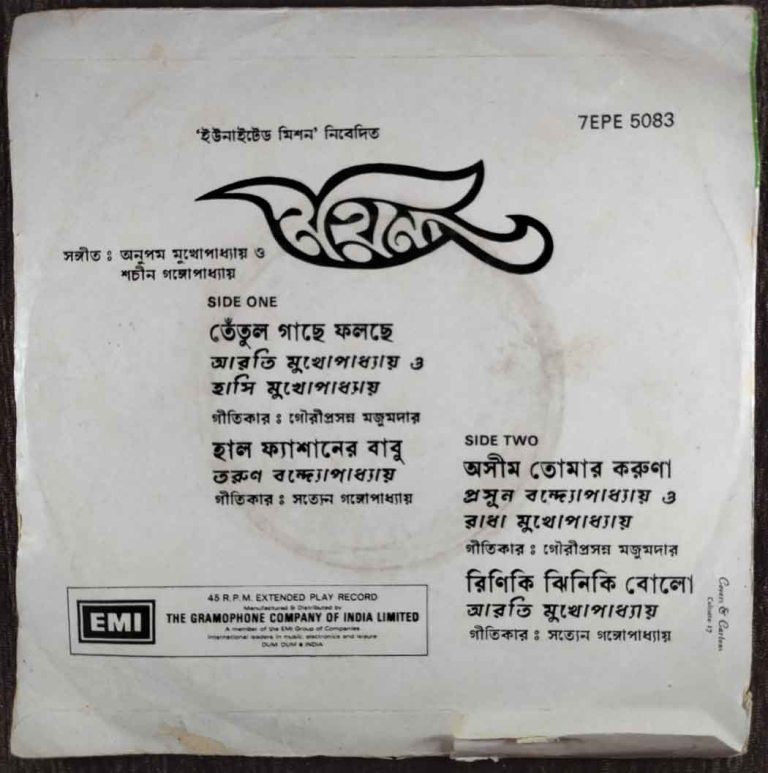 'ইউনাইটেড মিশন' নিবেদিত
7EPE 5083
ময়না
সঙ্গীত : অনুপম মুখোপাধ্যায় ও
শচীন গঙ্গোপাধ্যায়
SIDE ONE
তেঁতুল গাছে ফলছে
আরতি মুখোপাধ্যায় ও
হাসি মুখোপাধ্যায়
গীতিকার : গৌরীপ্রসন্ন মজুমদার
হাল ফ্যাশানের বাবু
তরুণ বন্দ্যোপাধ্যায়
গীতিকার : সত্যেন গঙ্গোপাধ্যায়
SIDE TWO
অসীম তোমার করুণা
প্রসূন বন্দ্যোপাধ্যায় ও
রাধা মুখোপাধ্যায়
গীতিকার : গৌরীপ্রসন্ন মজুমদার
রিণিকি ঝিনিকি বোলো
আরতি মুখোপাধ্যায়
গীতিকার : সত্যেন গঙ্গোপাধ্যায়
EMI
45 R.P.M. EXTENDED PLAY RECORD
Manufactured & Distributed by
THE GRAMOPHONE COMPANY OF INDIA LIMITED
A member of the EMI Group of Companies
International leaders in music, electronics and leisure
DUM DUM • INDIA